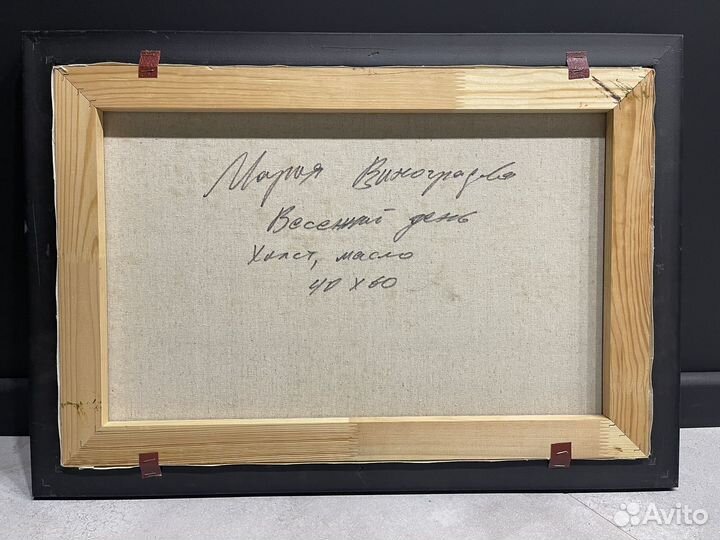 Мария Виноградова
Весенний день
Холст, масло
40 х 60
Avito